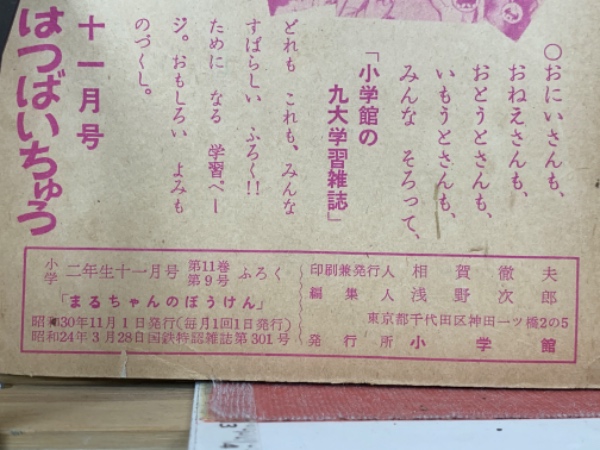 ○おにいさんも、
おねえさんも、
おとうとさんも、
いもうとさんも、
みんな そろって、
「小学館の
九大学習雑誌」
どれも これも、みんな
すばらしい ふろく!!
ために なる 学習ペー
ジ。おもしろい よみも
のづくし。
十一月号
はつばいちゅう
小学二年生十一月号 第11巻第9号 ふろく
「まるちゃんのぼうけん」
昭和30年11月1日発行(毎月1回1日発行)
昭和24年3月28日国鉄特認雑誌第301号
印刷兼発行人 相賀徹夫
編集人 浅野次郎
東京都千代田区神田一ツ橋2の5
発行所 小学館